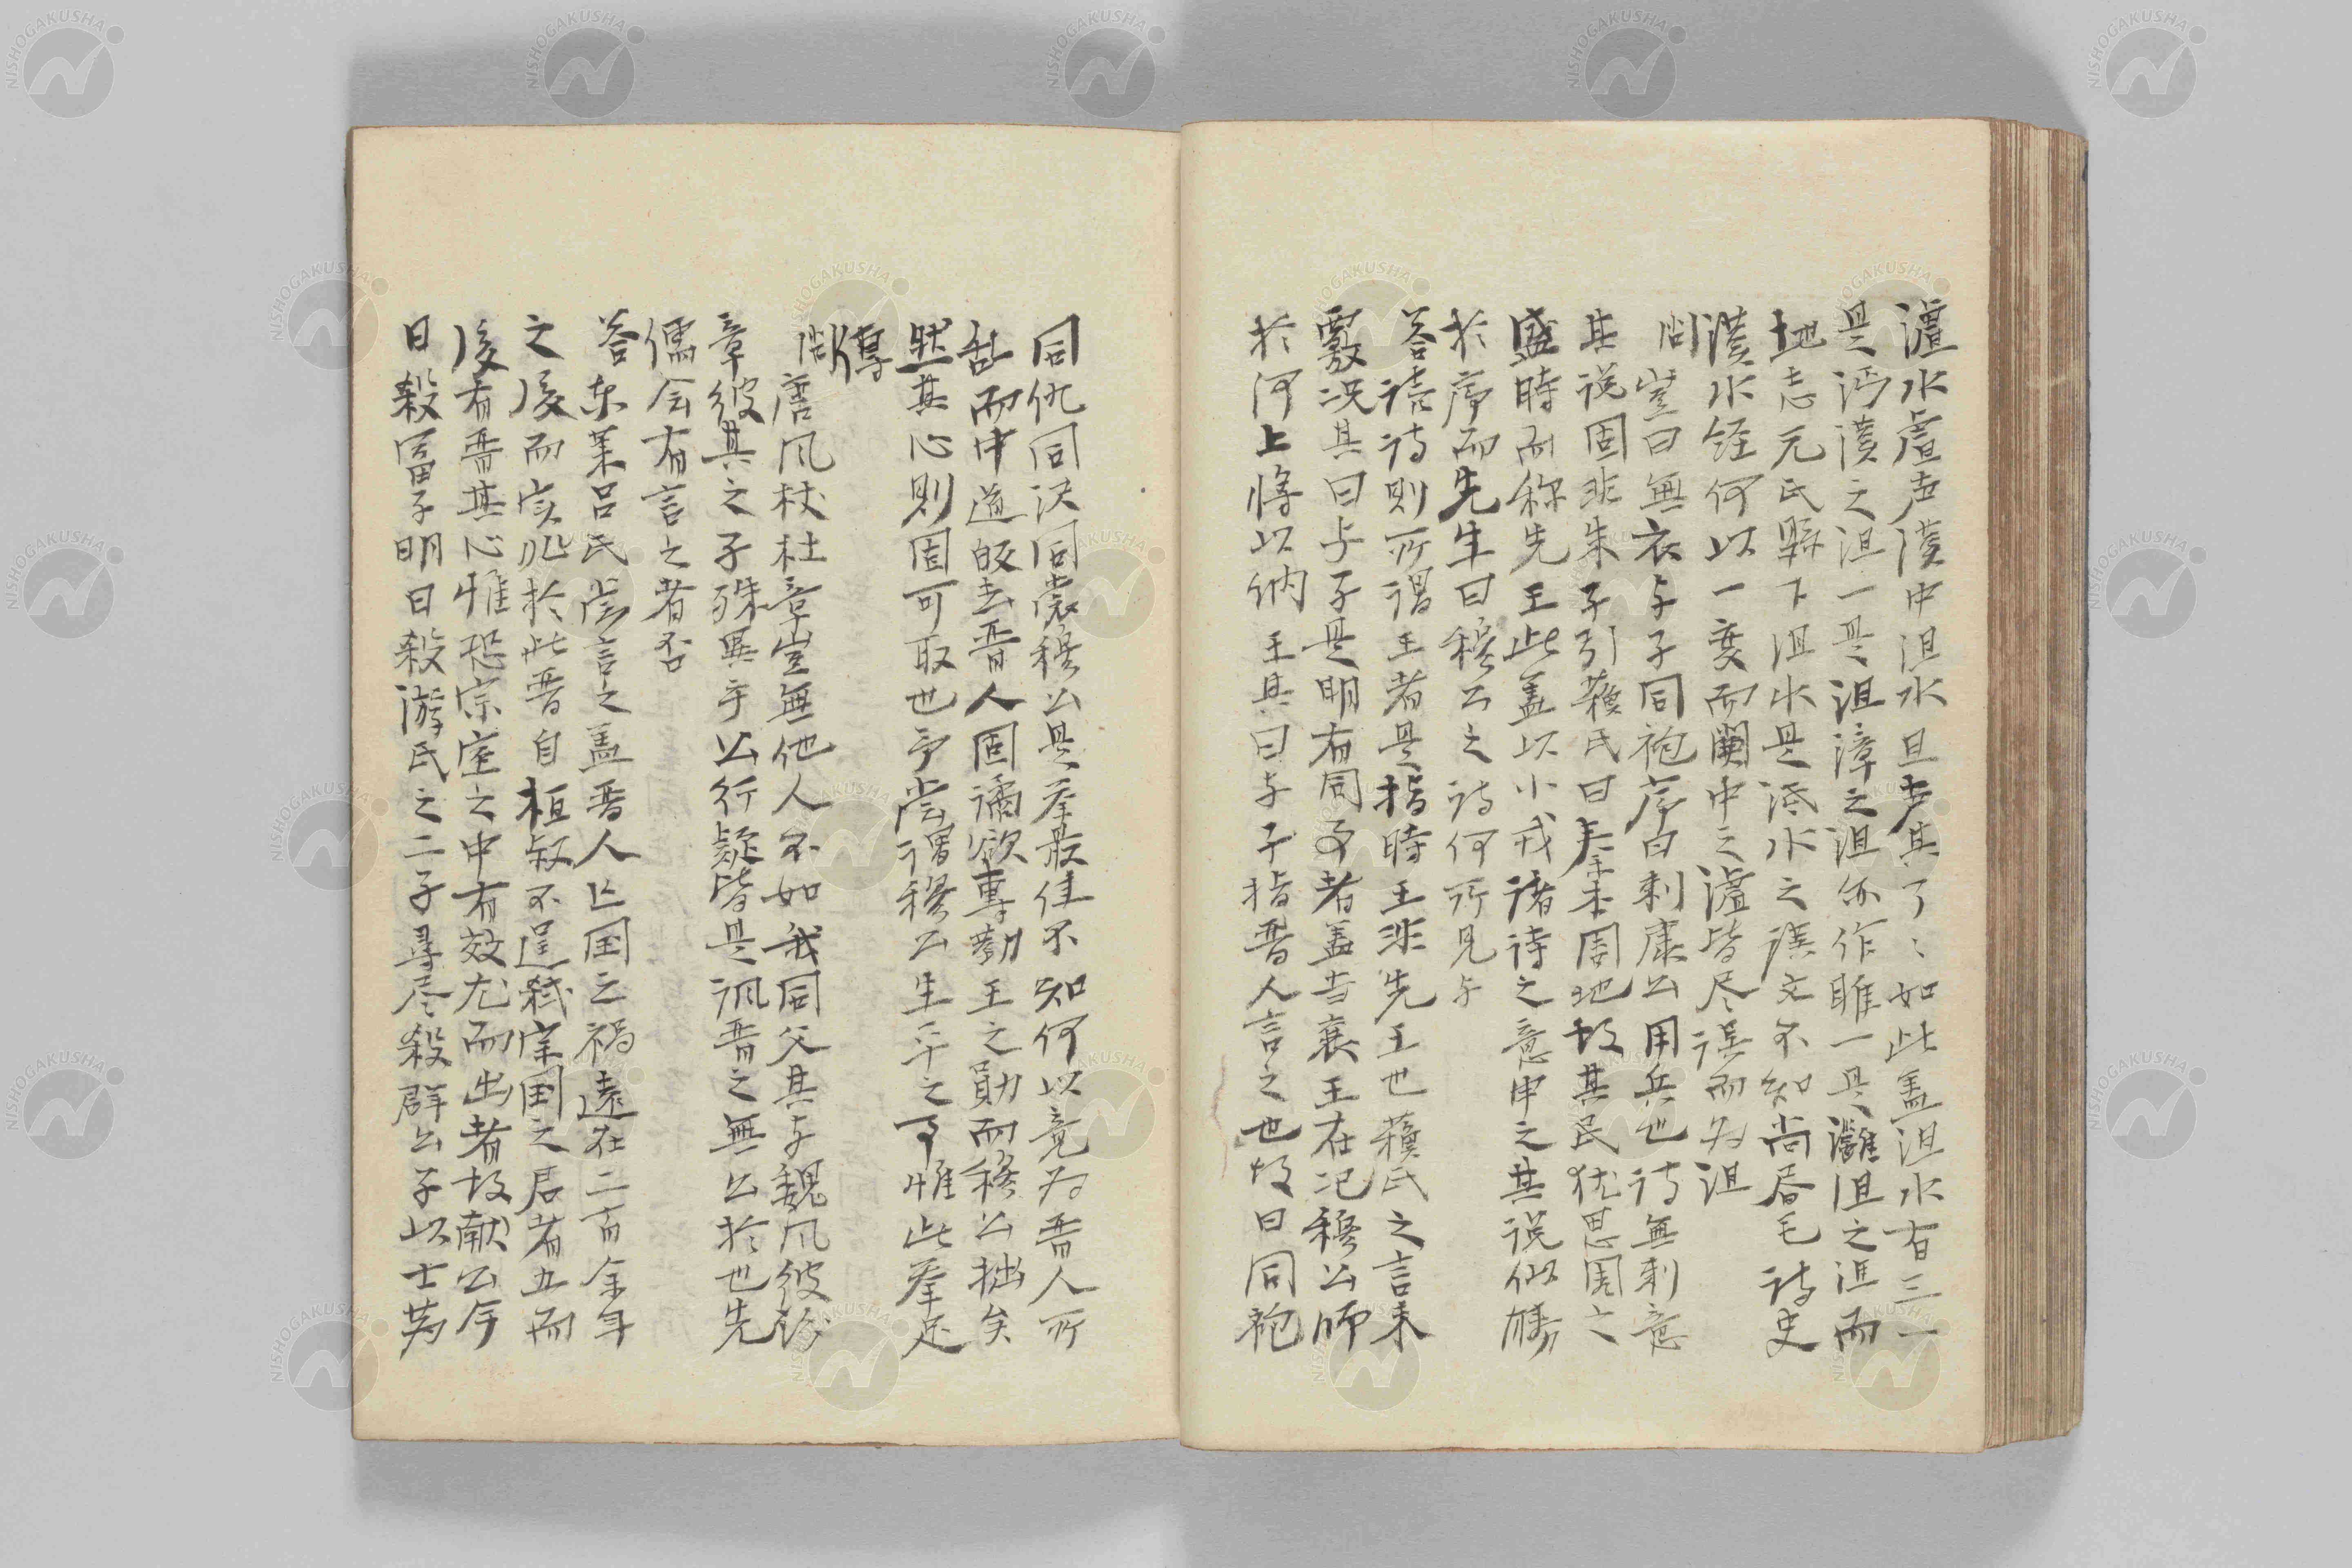 濾水虘声漢中沮水且声其了〻如此盖沮水有三一
是沔漢之沮一是沮漳之沮亦作雎一是灉沮之沮而
地志元氏縣下沮水是泜水之誤文不知尚居毛诗史
漢水経何以一変而闌中之濾皆尽誤而为沮
问 豈曰無衣与子同袍序曰刺康公用兵也诗無刺意
其说固非朱子引蘓氏曰秦本周地故其民犹思周之
盛時而称先王此盖以小戎諸诗之意申之其说似勝
於序而先生曰穆公之诗何所見与
答 读诗則所謂王者是指時王非先王也蘓氏之言未
覈况其曰与子是明有同事者盖当襄王在氾穆公師
於河上将以纳 王其曰与子子指晋人言之也故曰同袍
同仇同泽同裳穆公是举最佳不知何以竟为晋人所
乱而中道返去晋人固譎欲專勤王之勛而穆公拙矣
然其心則固可取也予尝謂穆公生平之事惟此举足
傳
问 唐风杕杜章豈無他人不如我同父其与魏风彼汾
章彼其之子殊異乎公行疑皆是諷晋之無公族也先
儒会有言之者否
答 东莱吕氏尝言之盖晋人亡国之禍遠在二百余年
之後而实兆於此晋自桓叔不逞弑宗国之君者五而
後有晋其心惟恐宗室之中有效尤而出者故献公今
日殺富子明日殺游氏之二子尋尽殺群公子以士蒍